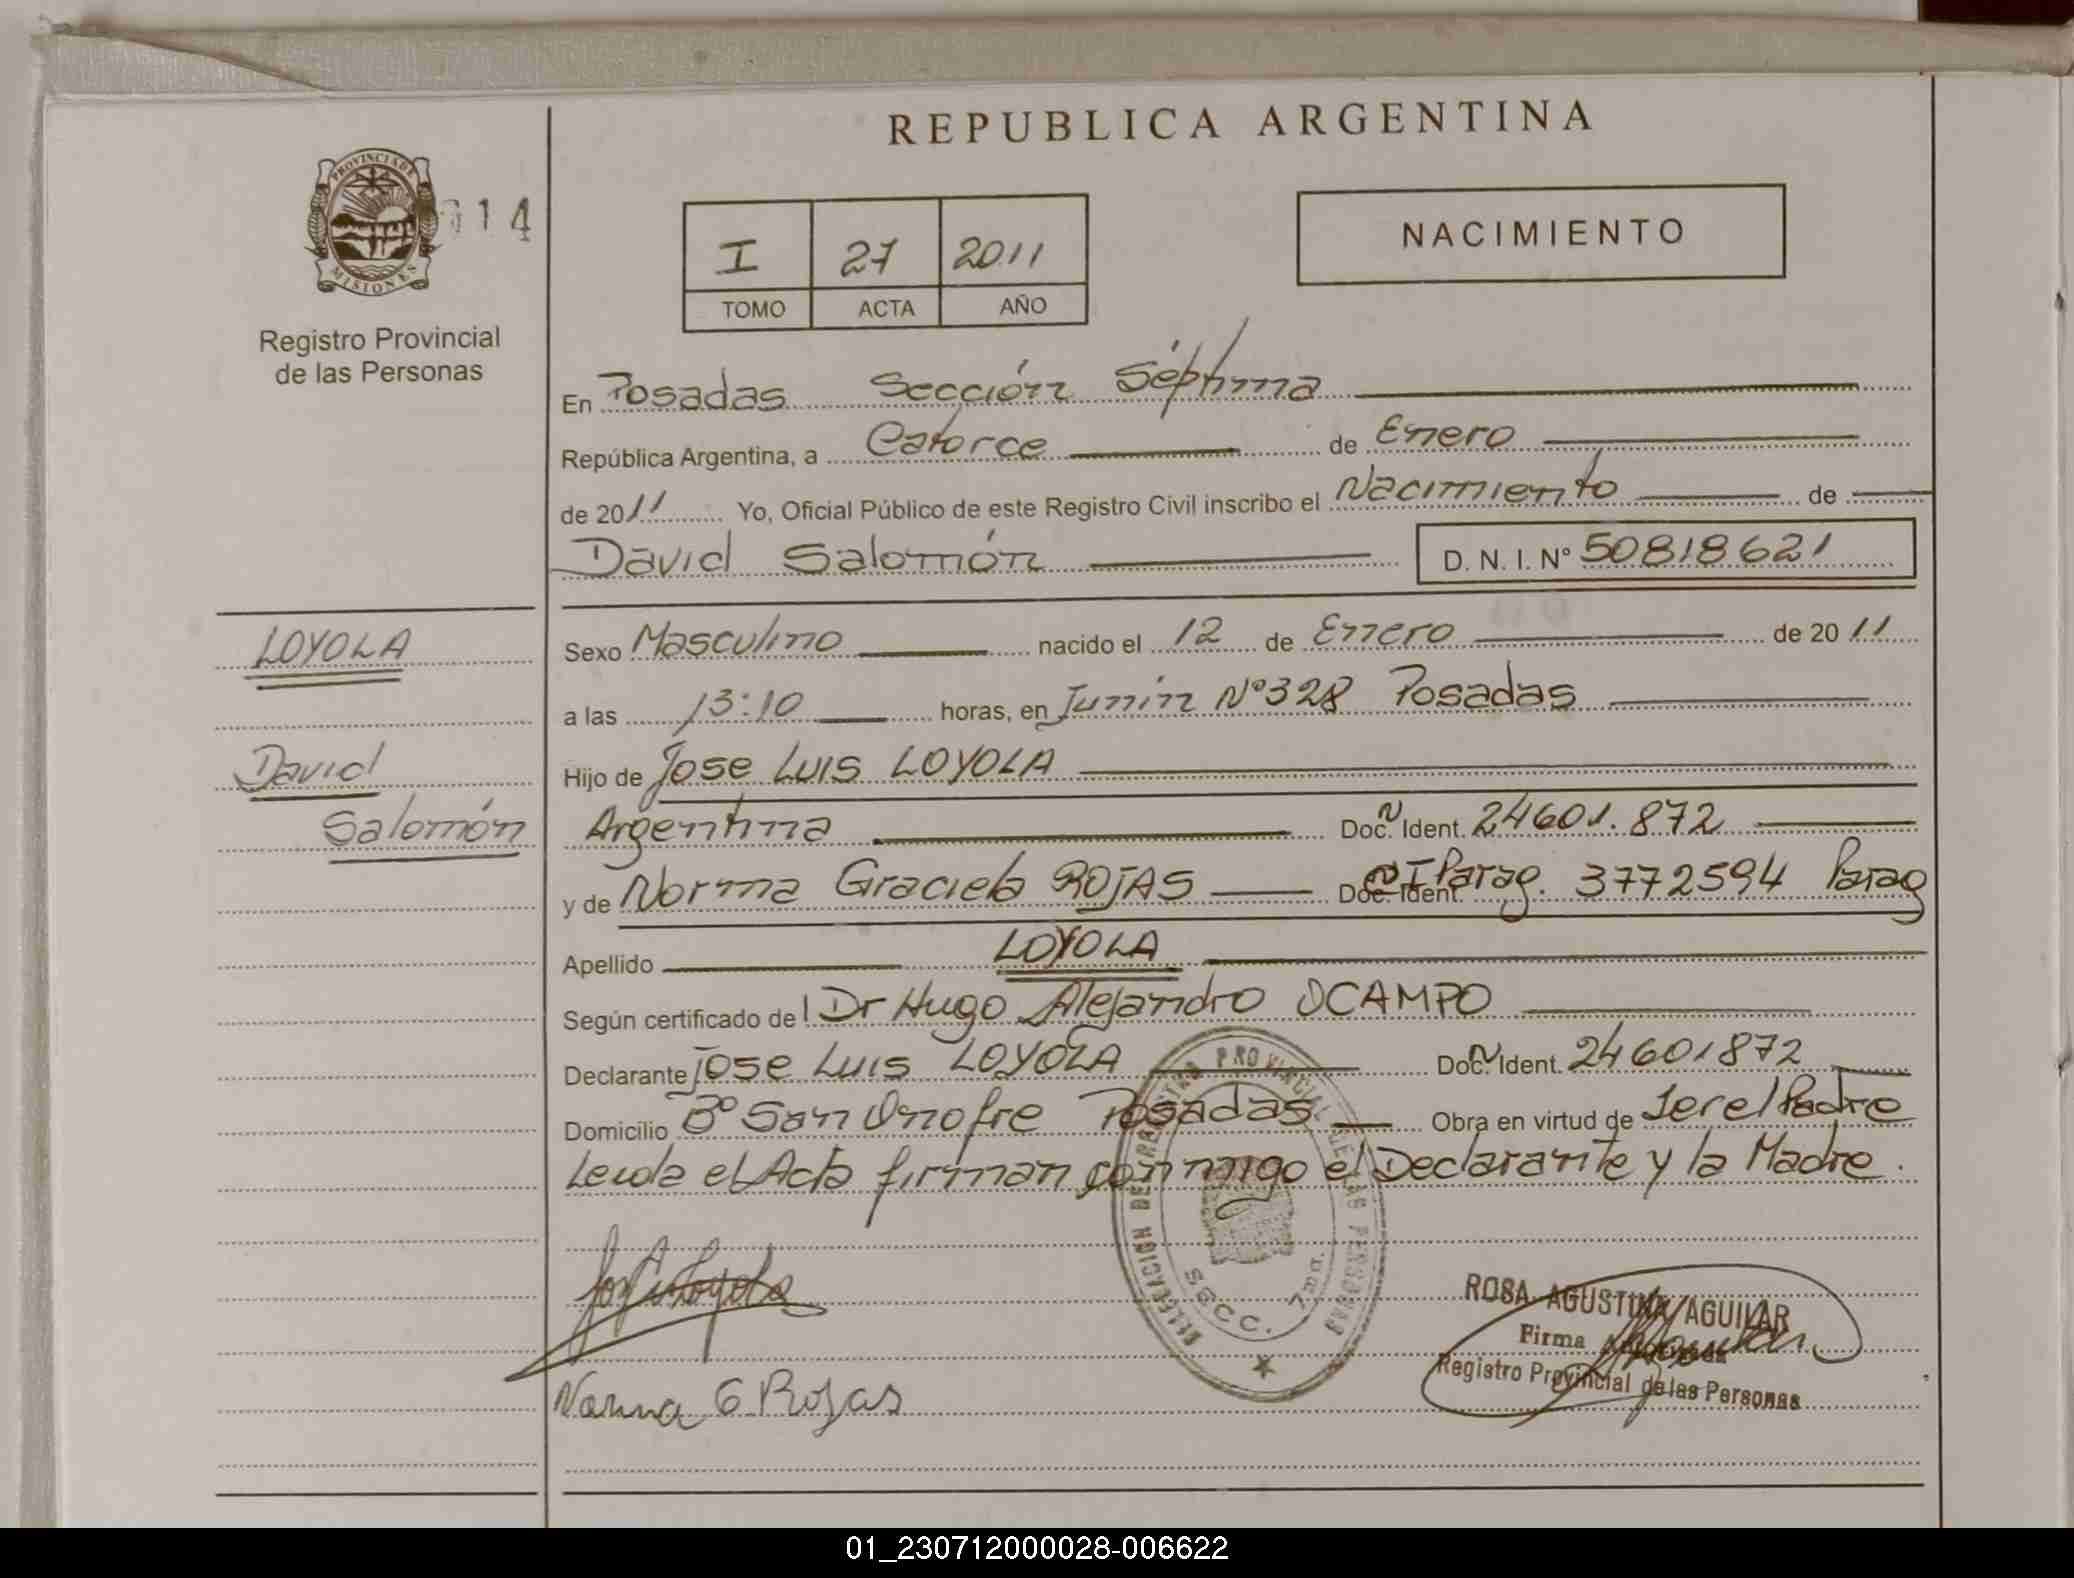 REPUBLICA ARGENTINA
PROVINCIA DE
MISIONES
014
Registro Provincial
de las Personas
I 27 2011
TOMO ACTA AÑO
NACIMIENTO
En Posadas Sección Séptima
República Argentina, a Catorce de Enero
de 2011 Yo, Oficial Público de este Registro Civil inscribo el Nacimiento de
David Salomón D. N. I. Nº 50818621
LOYOLA
David
Salomón
Sexo Masculino nacido el 12 de Enero de 2011
a las 13:10 horas, en Junín Nº 328 Posadas
Hijo de Jose Luis LOYOLA
Argentina Doc. Ident. 24601.872
y de Norma Graciela ROJAS Doc. Ident. Parag. 3772594 Parag
Apellido LOYOLA
Según certificado del Dr Hugo Alejandro OCAMPO
Declarante Jose Luis LOYOLA Doc. Ident. 24601872
Domicilio Bº San Onofre Posadas Obra en virtud de Ser el Padre
Leida el Acta firman conmigo el Declarante y la Madre.
DELEGACIÓN DEL REGISTRO PROVINCIAL DE LAS PERSONAS
SECC. 7ma.
Norma G Rojas
ROSA AGUSTINA AGUILAR
Firma Autorizada
Registro Provincial de las Personas
01_230712000028-006622